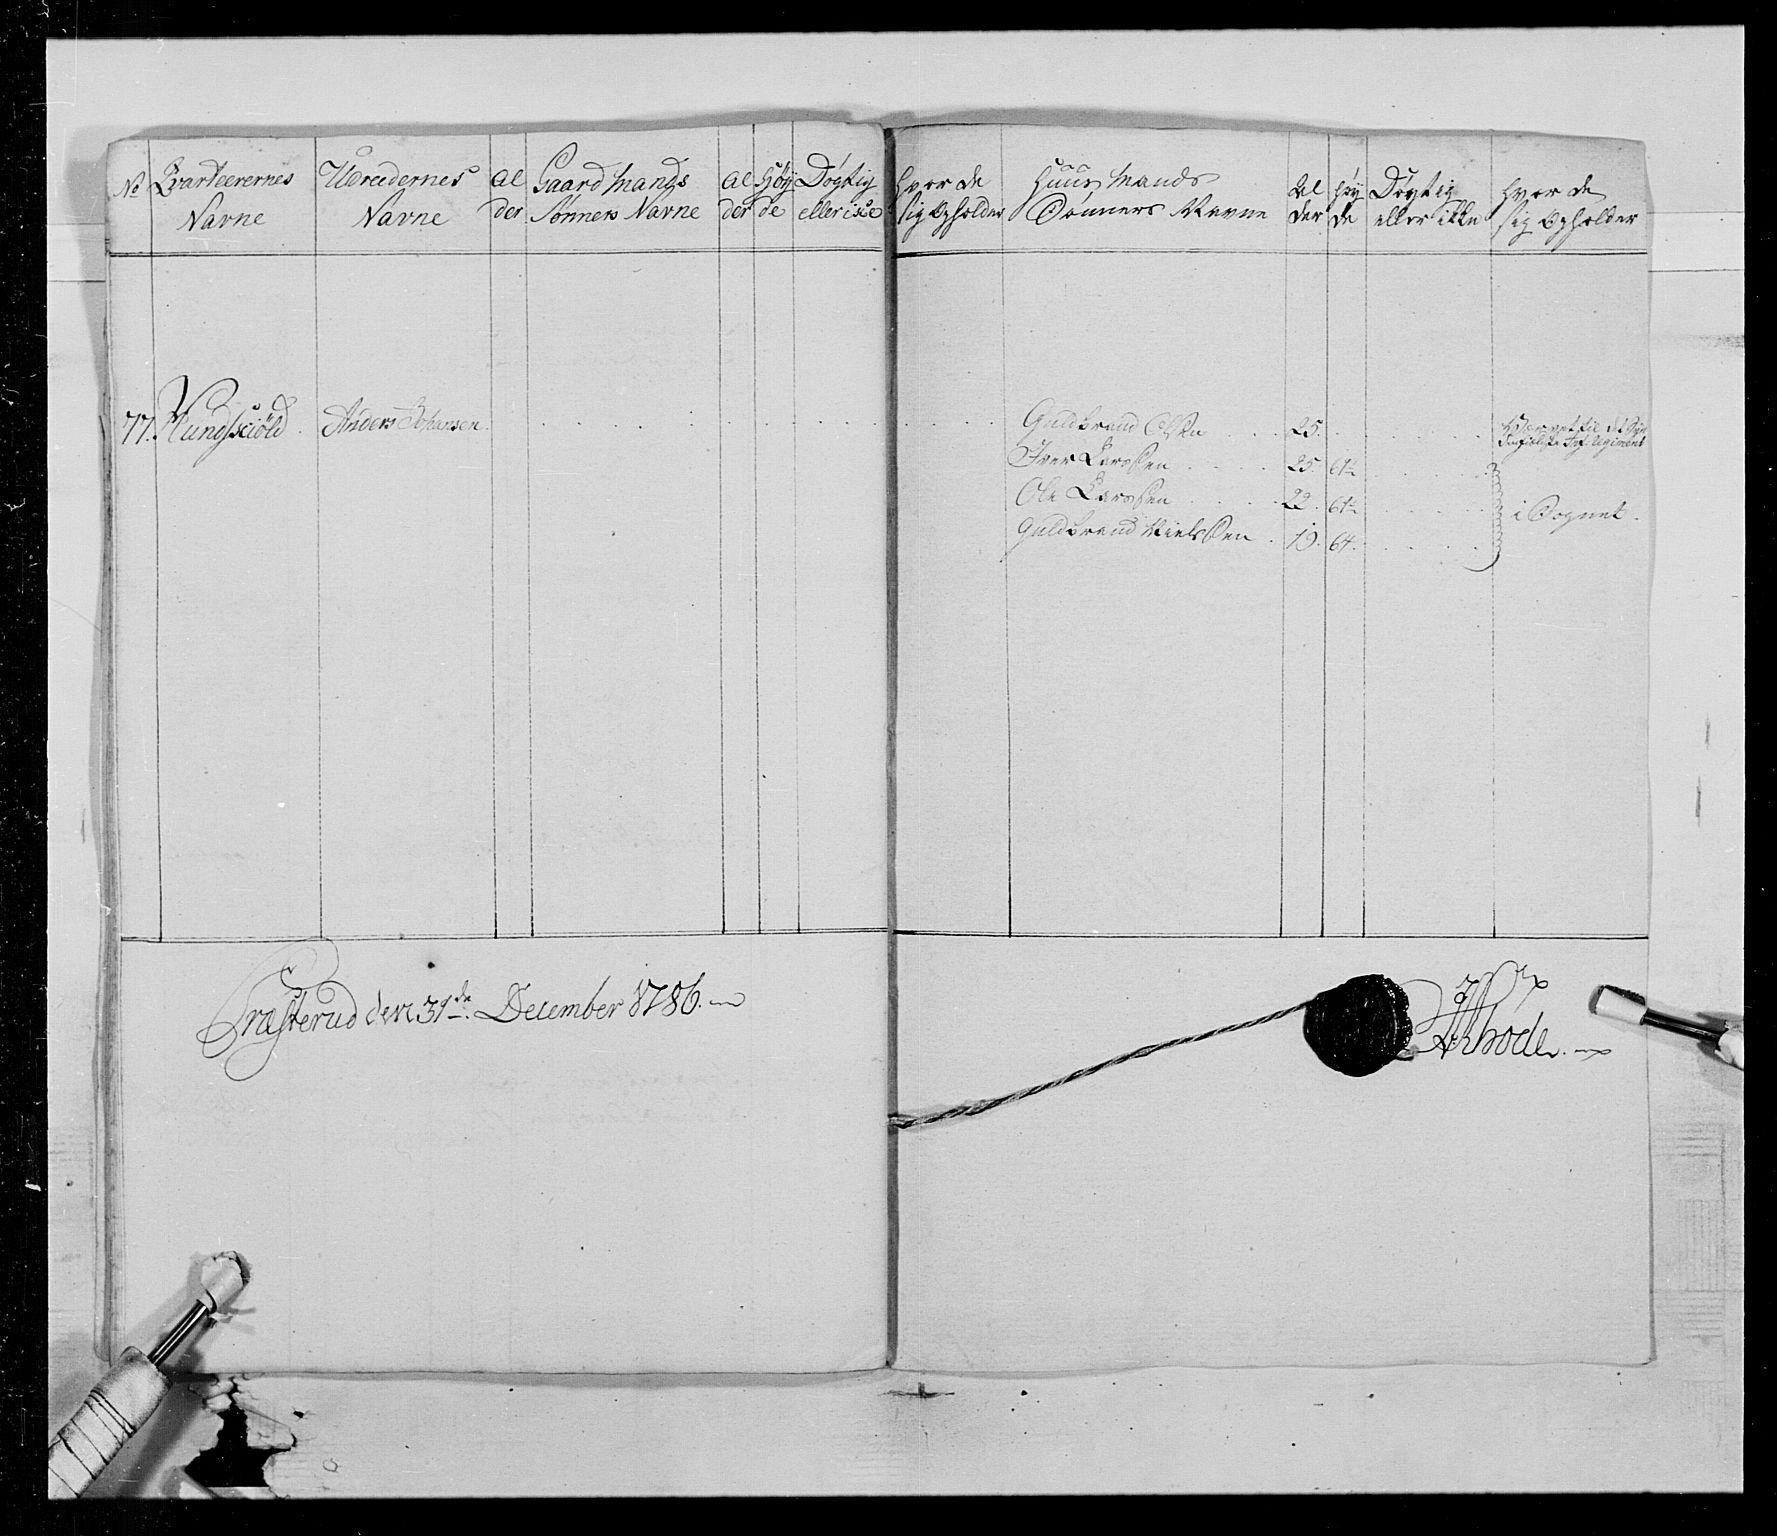 No Qvarteerernes Navne
Udreedernes Navne
Al der
Gaard Mands Sønners Navne
Al der
Høy de
Døgtig eller icke
Hvor de sig Opholder
Huus Mands Sønners Navne
Al der
Høy de
Døgtig eller ikke
Hvor de sig Opholder
77. Hundskiöld . Anders Johansen . . . Guldbrand Olsen . . . 25.
Hværvet til det
Inf. Regiment
Iver Larssen . . . . 25. 61½
Ole Larssen . . . . 22. 61½
i Sognet .
Guldbrand Nielssen . 19. 64.
Præsterud den 31de December 1786.
Rhode.